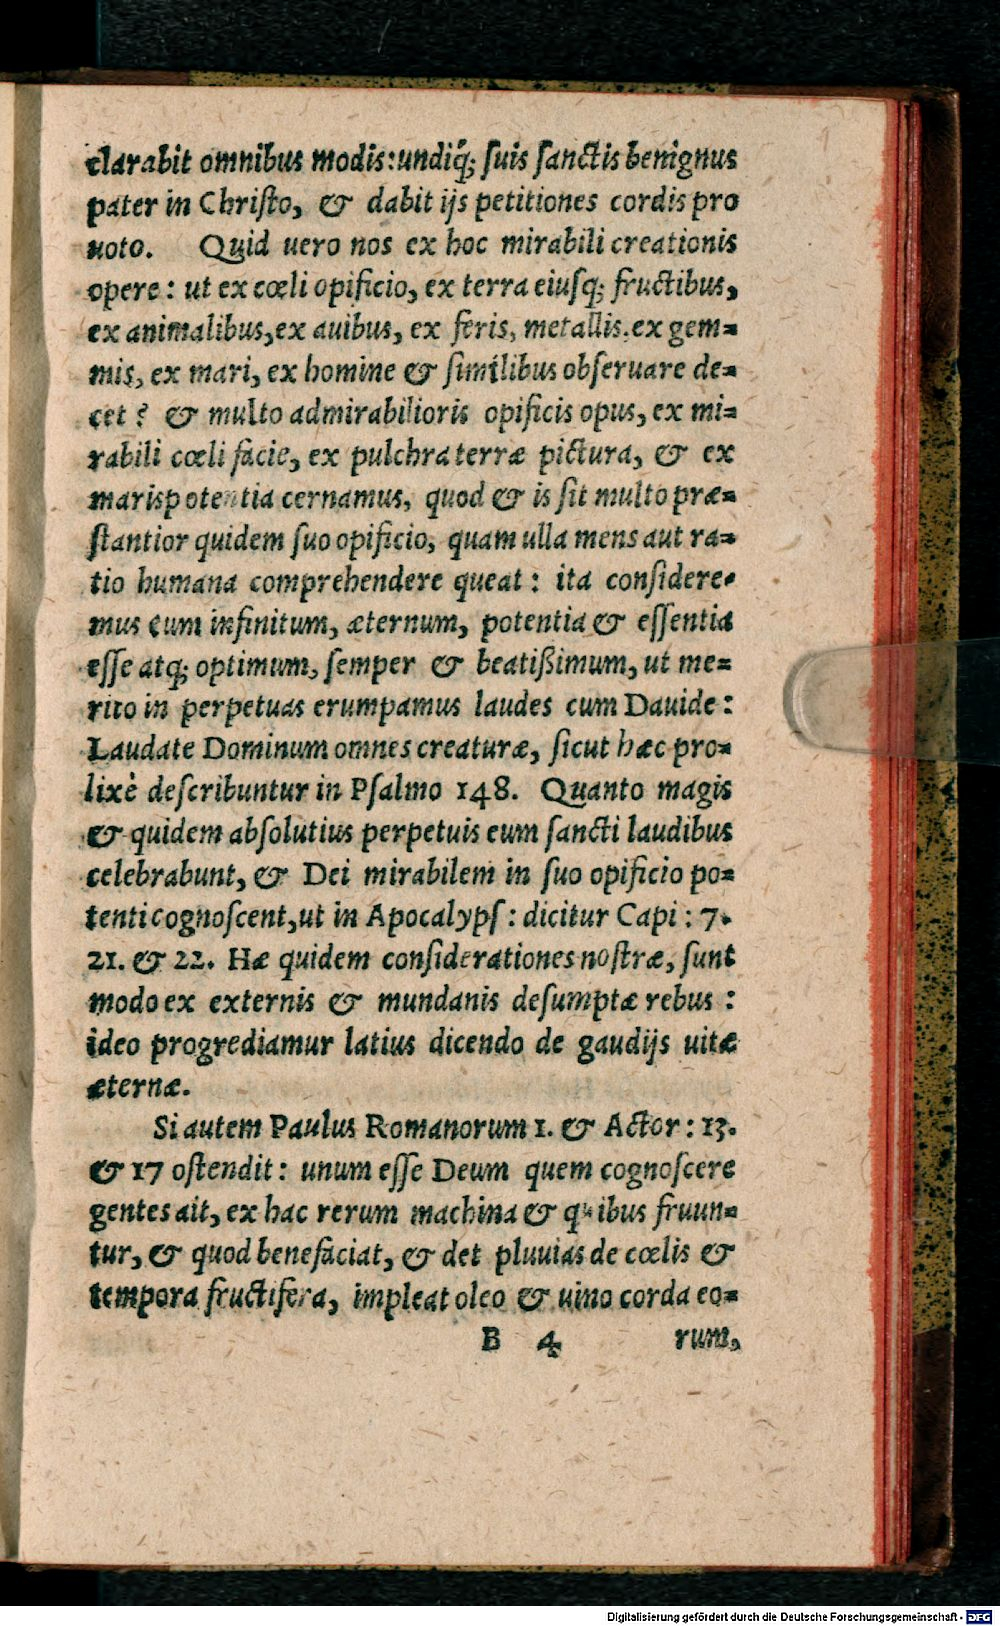 clarabit omnibus modis:undiq́; ſuis ſanctis benignus
pater in Chriſto, & dabit ijs petitiones cordis pro
uoto. Quid uero nos ex hoc mirabili creationis
opere: ut ex cœli opificio, ex terra eiuſq; fructibus,
ex animalibus,ex auibus, ex feris, metallis,ex gem=
mis, ex mari, ex homine & ſimilibus obſeruare de=
cet? & multo admirabilioris opificis opus, ex mi=
rabili cœli facie, ex pulchra terræ pictura, & ex
marispotentia cernamus, quod & is ſit multo præ=
ſtantior quidem ſuo opificio, quam ulla mens aut ra=
tio humana comprehendere queat: ita considere=
mus eum infinitum, æternum, potentia & eſſentia
eſſe atq; optimum, ſemper & beatißimum, ut me=
rito in perpetuas erumpamus laudes cum Dauide:
Laudate Dominum omnes creaturæ, ſicut hæc pro=
lixè deſcribuntur in Pſalmo 148. Quanto magis
& quidem abſolutius perpetuis eum ſancti laudibus
celebrabunt, & Dei mirabilem in ſuo opificio po=
tenti cognoſcent,ut in Apocalypſ: dicitur Capi: 7.
21. & 22. Hæ quidem conſiderationes noſtræ, ſunt
modo ex externis & mundanis deſumptæ rebus:
ideo progrediamur latius dicendo de gaudijs uitæ
æternæ.
Si autem Paulus Romanorum 1. & Actor: 13.
& 17 oſtendit: unum eſſe Deum quem cognoſcere
gentes ait, ex hac rerum machina & quibus fruun=
tur, & quod benefaciat, & det pluuias de cœlis &
tempora fructifera, impleat oleo & uino corda eo=
B 4 rum,
Digitalisierung gefördert durch die Deutsche Forschungsgemeinschaft - DFG